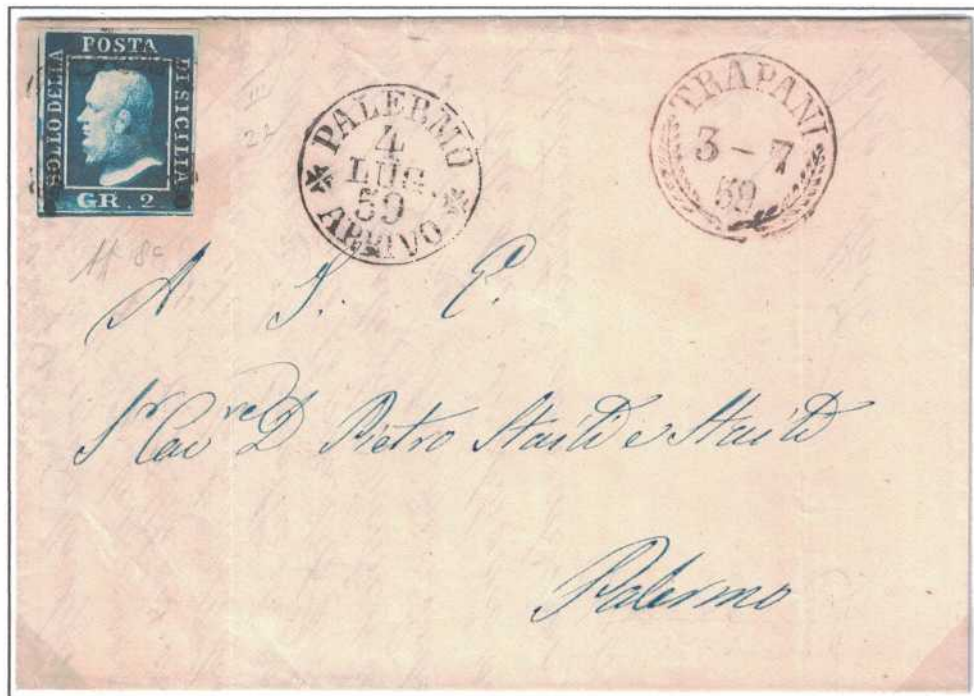 POSTA
BOLLO DELLA
DI SICILIA
GR. 2
PALERMO
4
LUG.
59
ARRIVO
TRAPANI
3 - 7
59
A S. E.
Sr. Cavre D Pietro Staiti e Staiti
Palermo